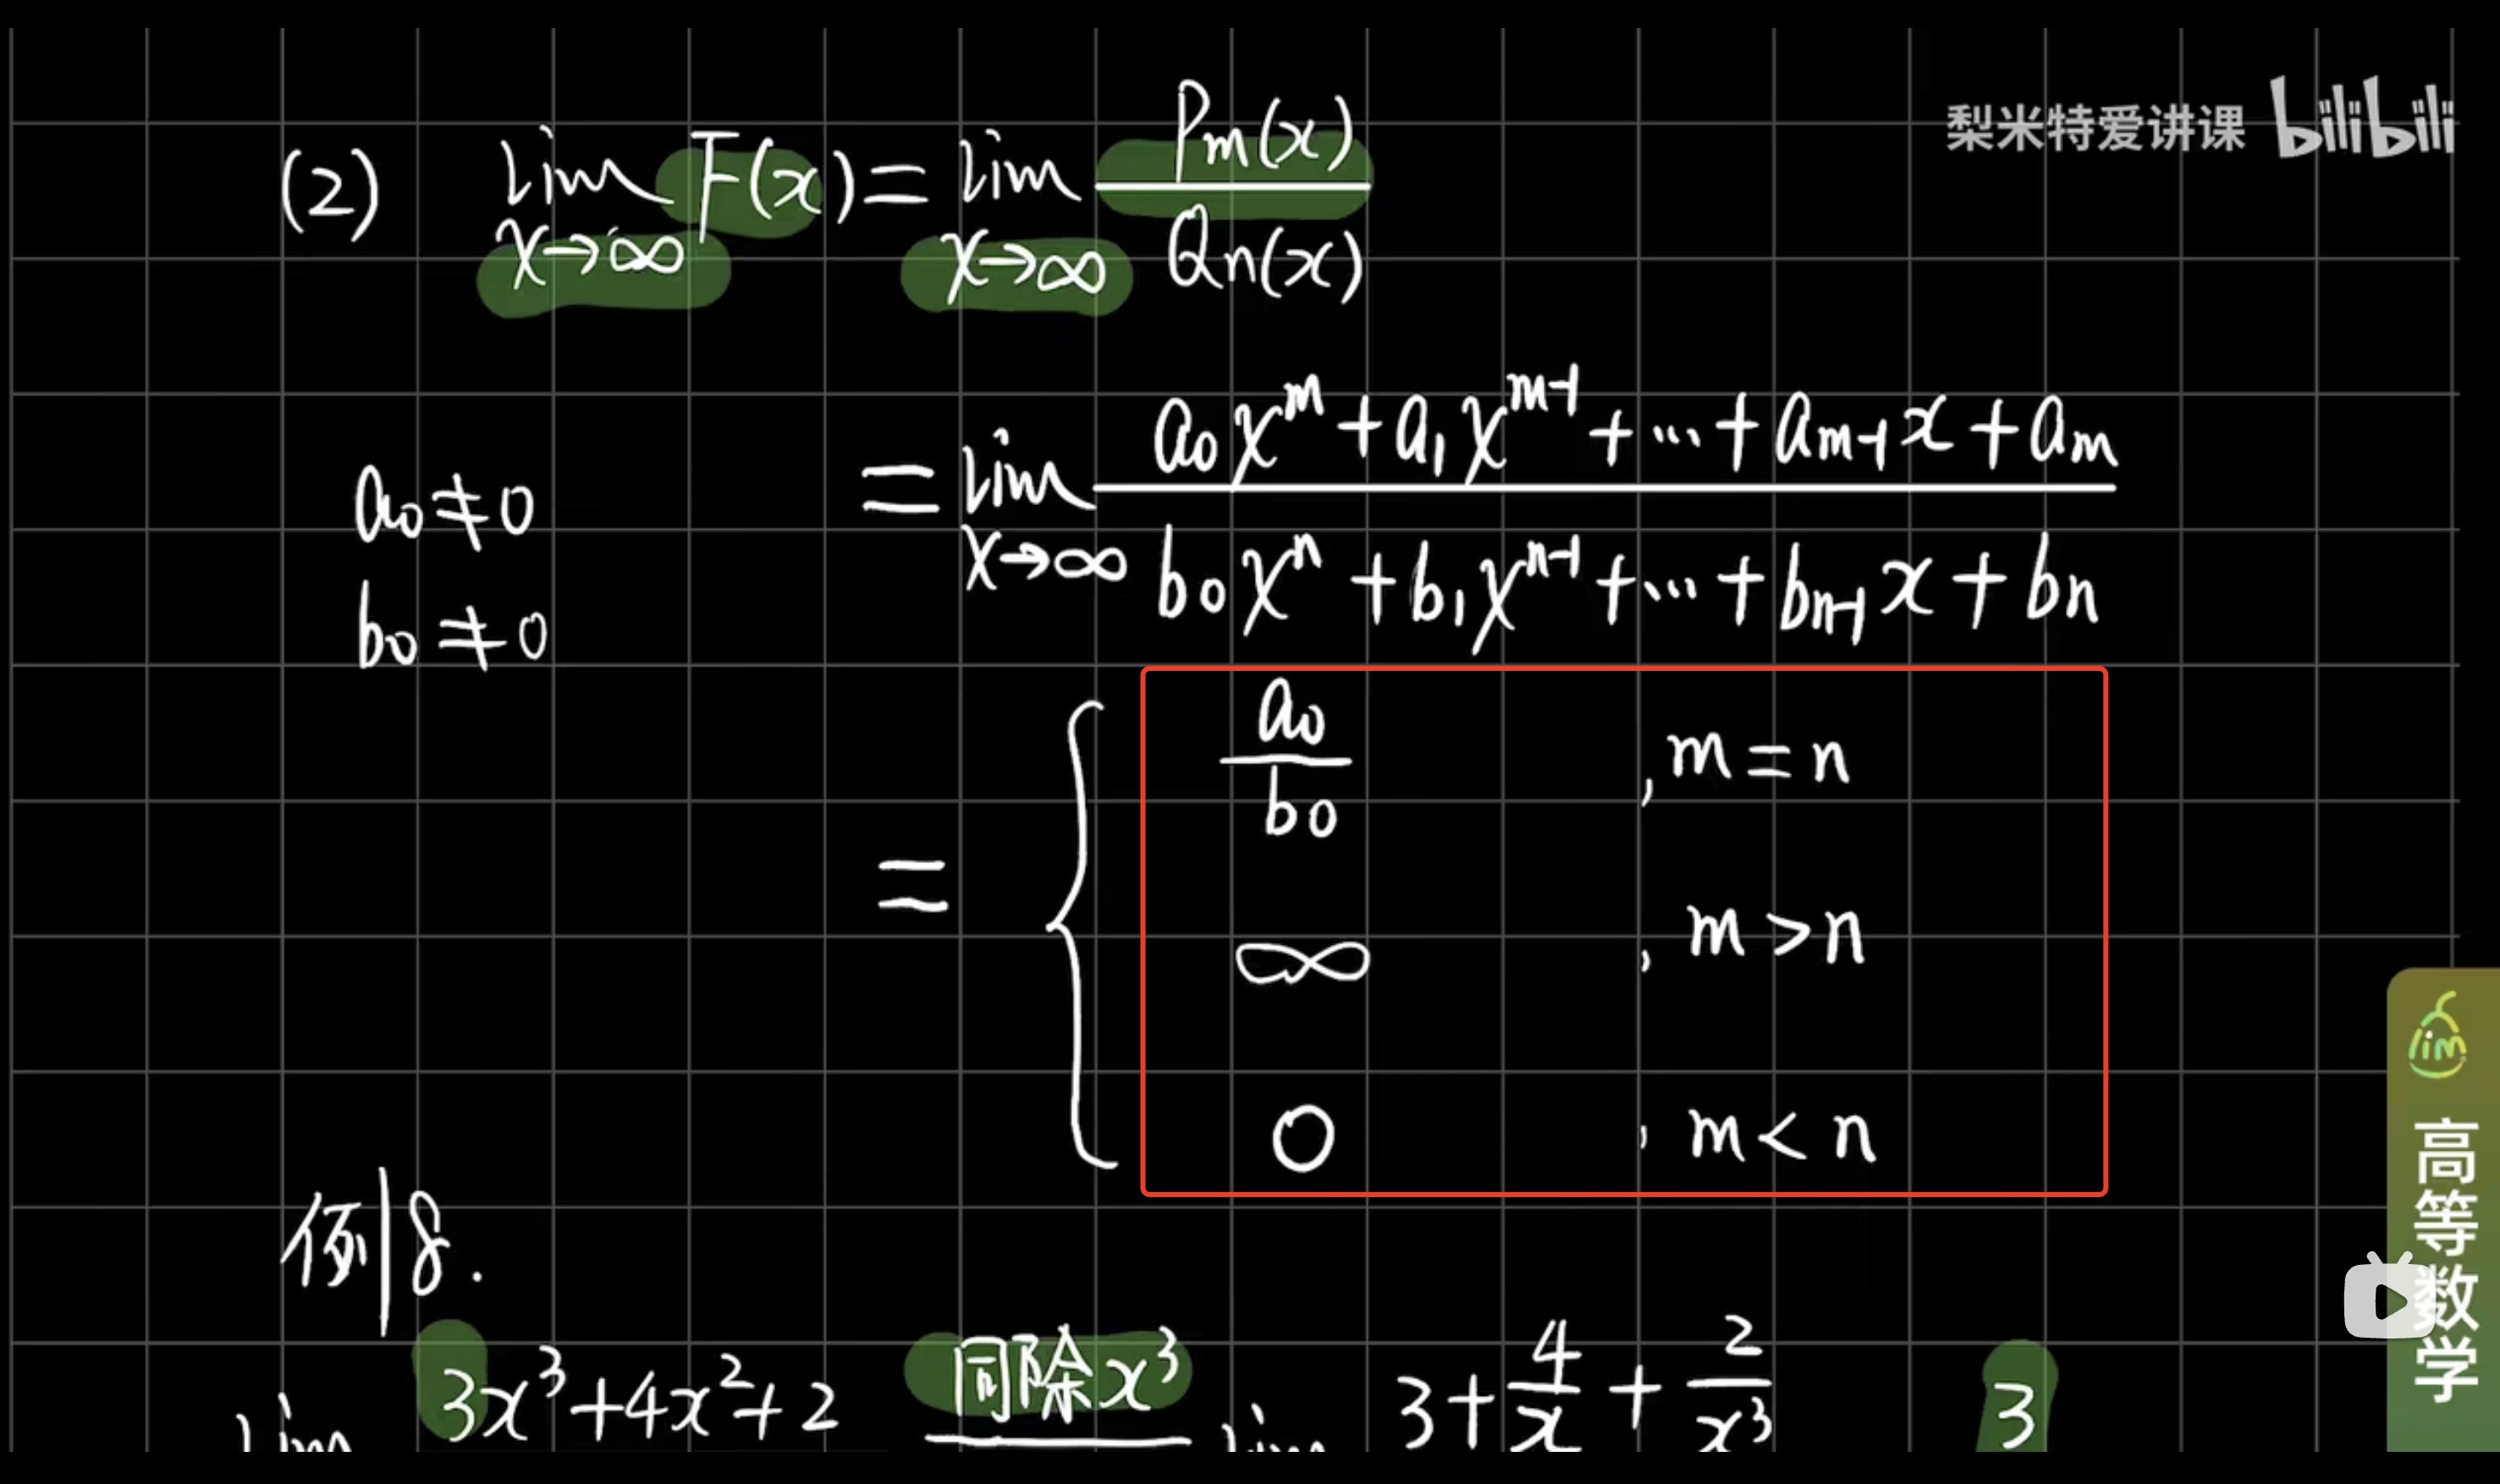 梨米特爱讲课 bilibili
(2) lim F(x) = lim Pm(x)/Qn(x)
x→∞ x→∞
a₀≠0
b₀≠0
= lim (a₀xᵐ + a₁xᵐ⁻¹ + … + aₘ₋₁x + aₘ)/(b₀xⁿ + b₁xⁿ⁻¹ + … + bₙ₋₁x + bₙ)
x→∞
= { a₀/b₀ , m = n
∞ , m > n
0 , m < n
lim
高等数学
例8.
lim 3x³+4x²+2 同除x³ lim 3+4/x+2/x³ 3